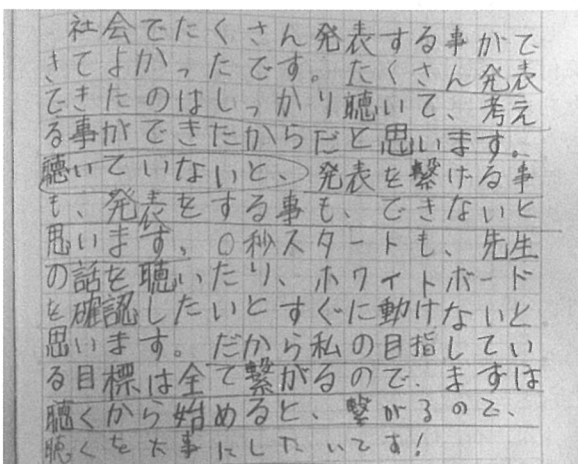 社会でたくさん発表する事がで
きてよかったです。たくさん発表
できたのはしっかり聴いて、考え
る事ができたからだと思います。
聴いていないと、発表を繋げる事
も、発表をする事も、できないと
思います。0秒スタートも、先生
の話を聴いたり、ホワイトボード
を確認したいとすぐに動けないと
思います。だから私の目指してい
る目標は全て繋がるので、まずは
聴くから始めると、繋がるので、
聴くを大事にしたいです!